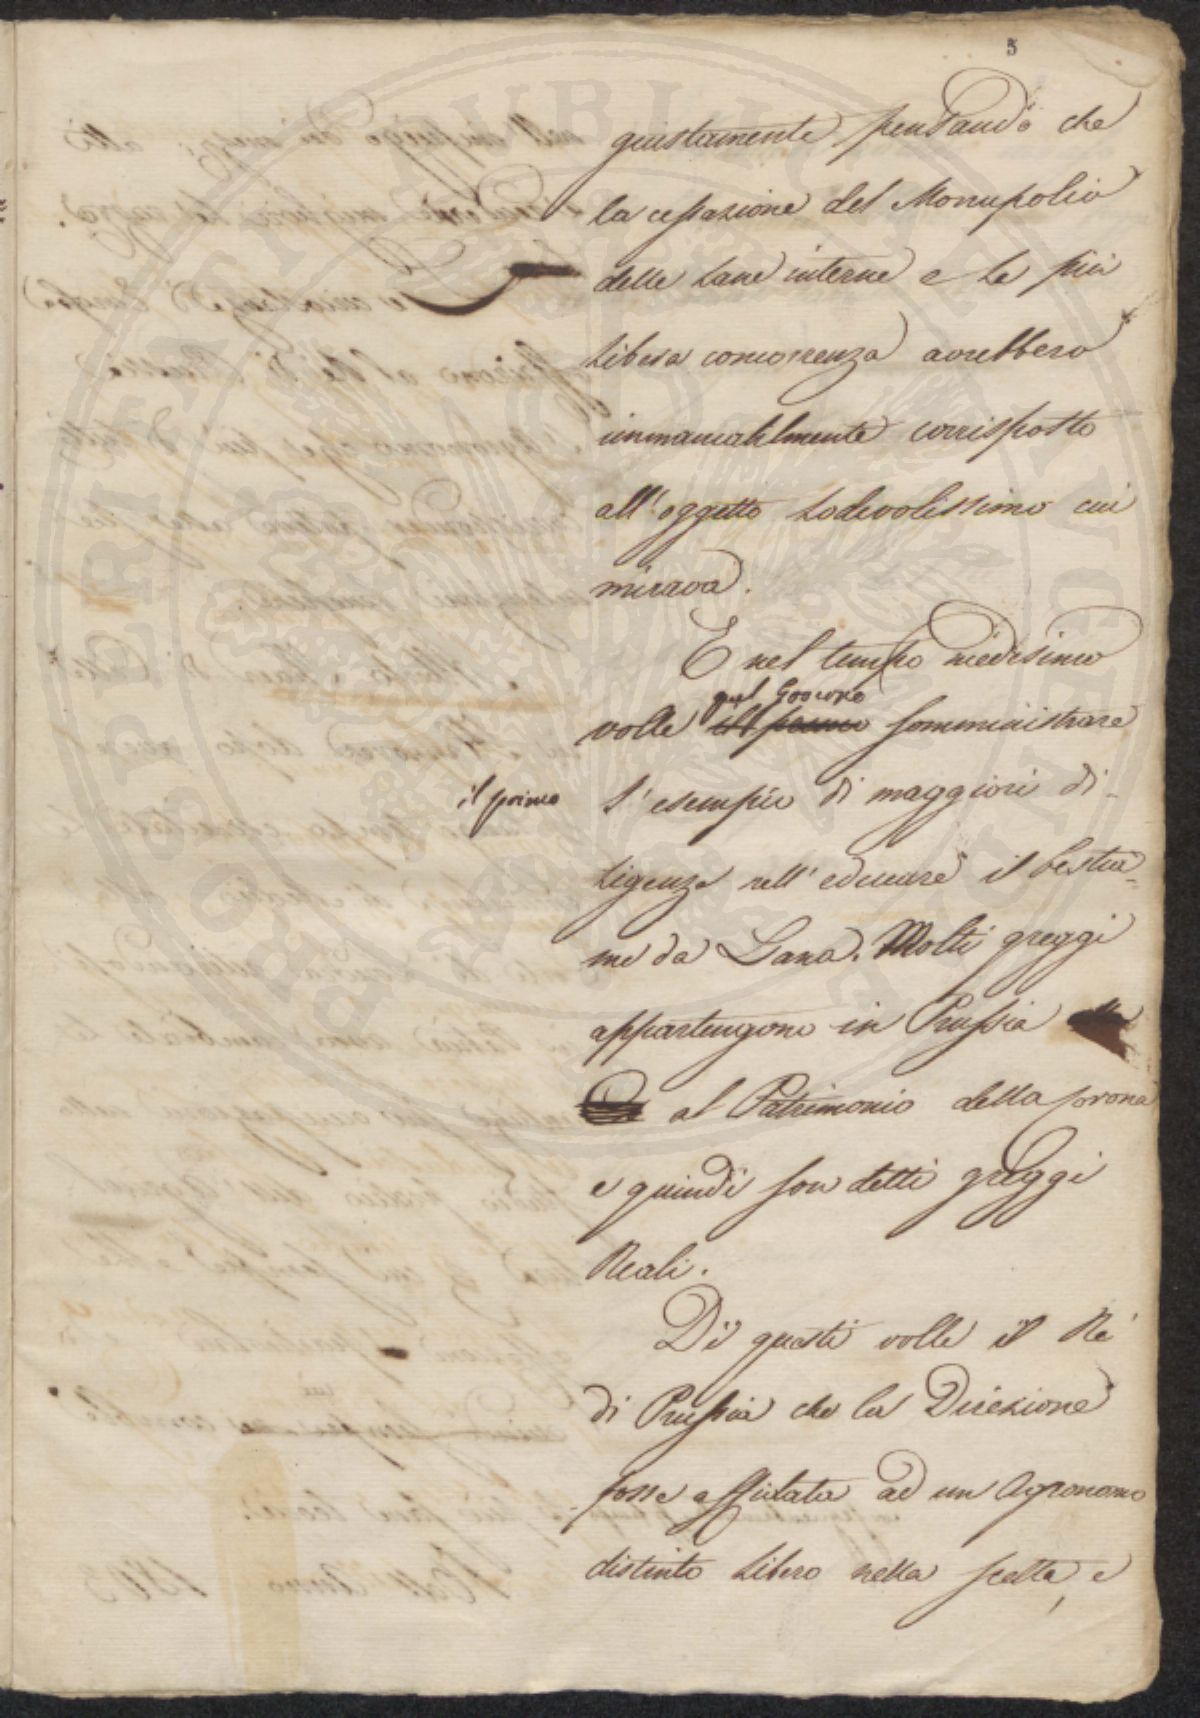 5
giustamente pensando che
la cessazione del Monopolio
delle Lane interne e le più
libera concorrenza avrebbero
immancabilmente corrisposto
all'oggetto Lodevolissimo cui
mirava.
E nel tempo medesimo
quel Governo
volle il primo somministrare
il primo l'esempio di maggiori di-
ligenze nell'educare il bestia-
me da Lana. Molti greggi
appartengono in Prussia
al Patrimonio della Corona
e quindi son detti greggi
Reali.
Di questi volle il Ré
di Prussia che la Direzione
fosse affidata ad un Agronomo
distinto libero nella scelta, e